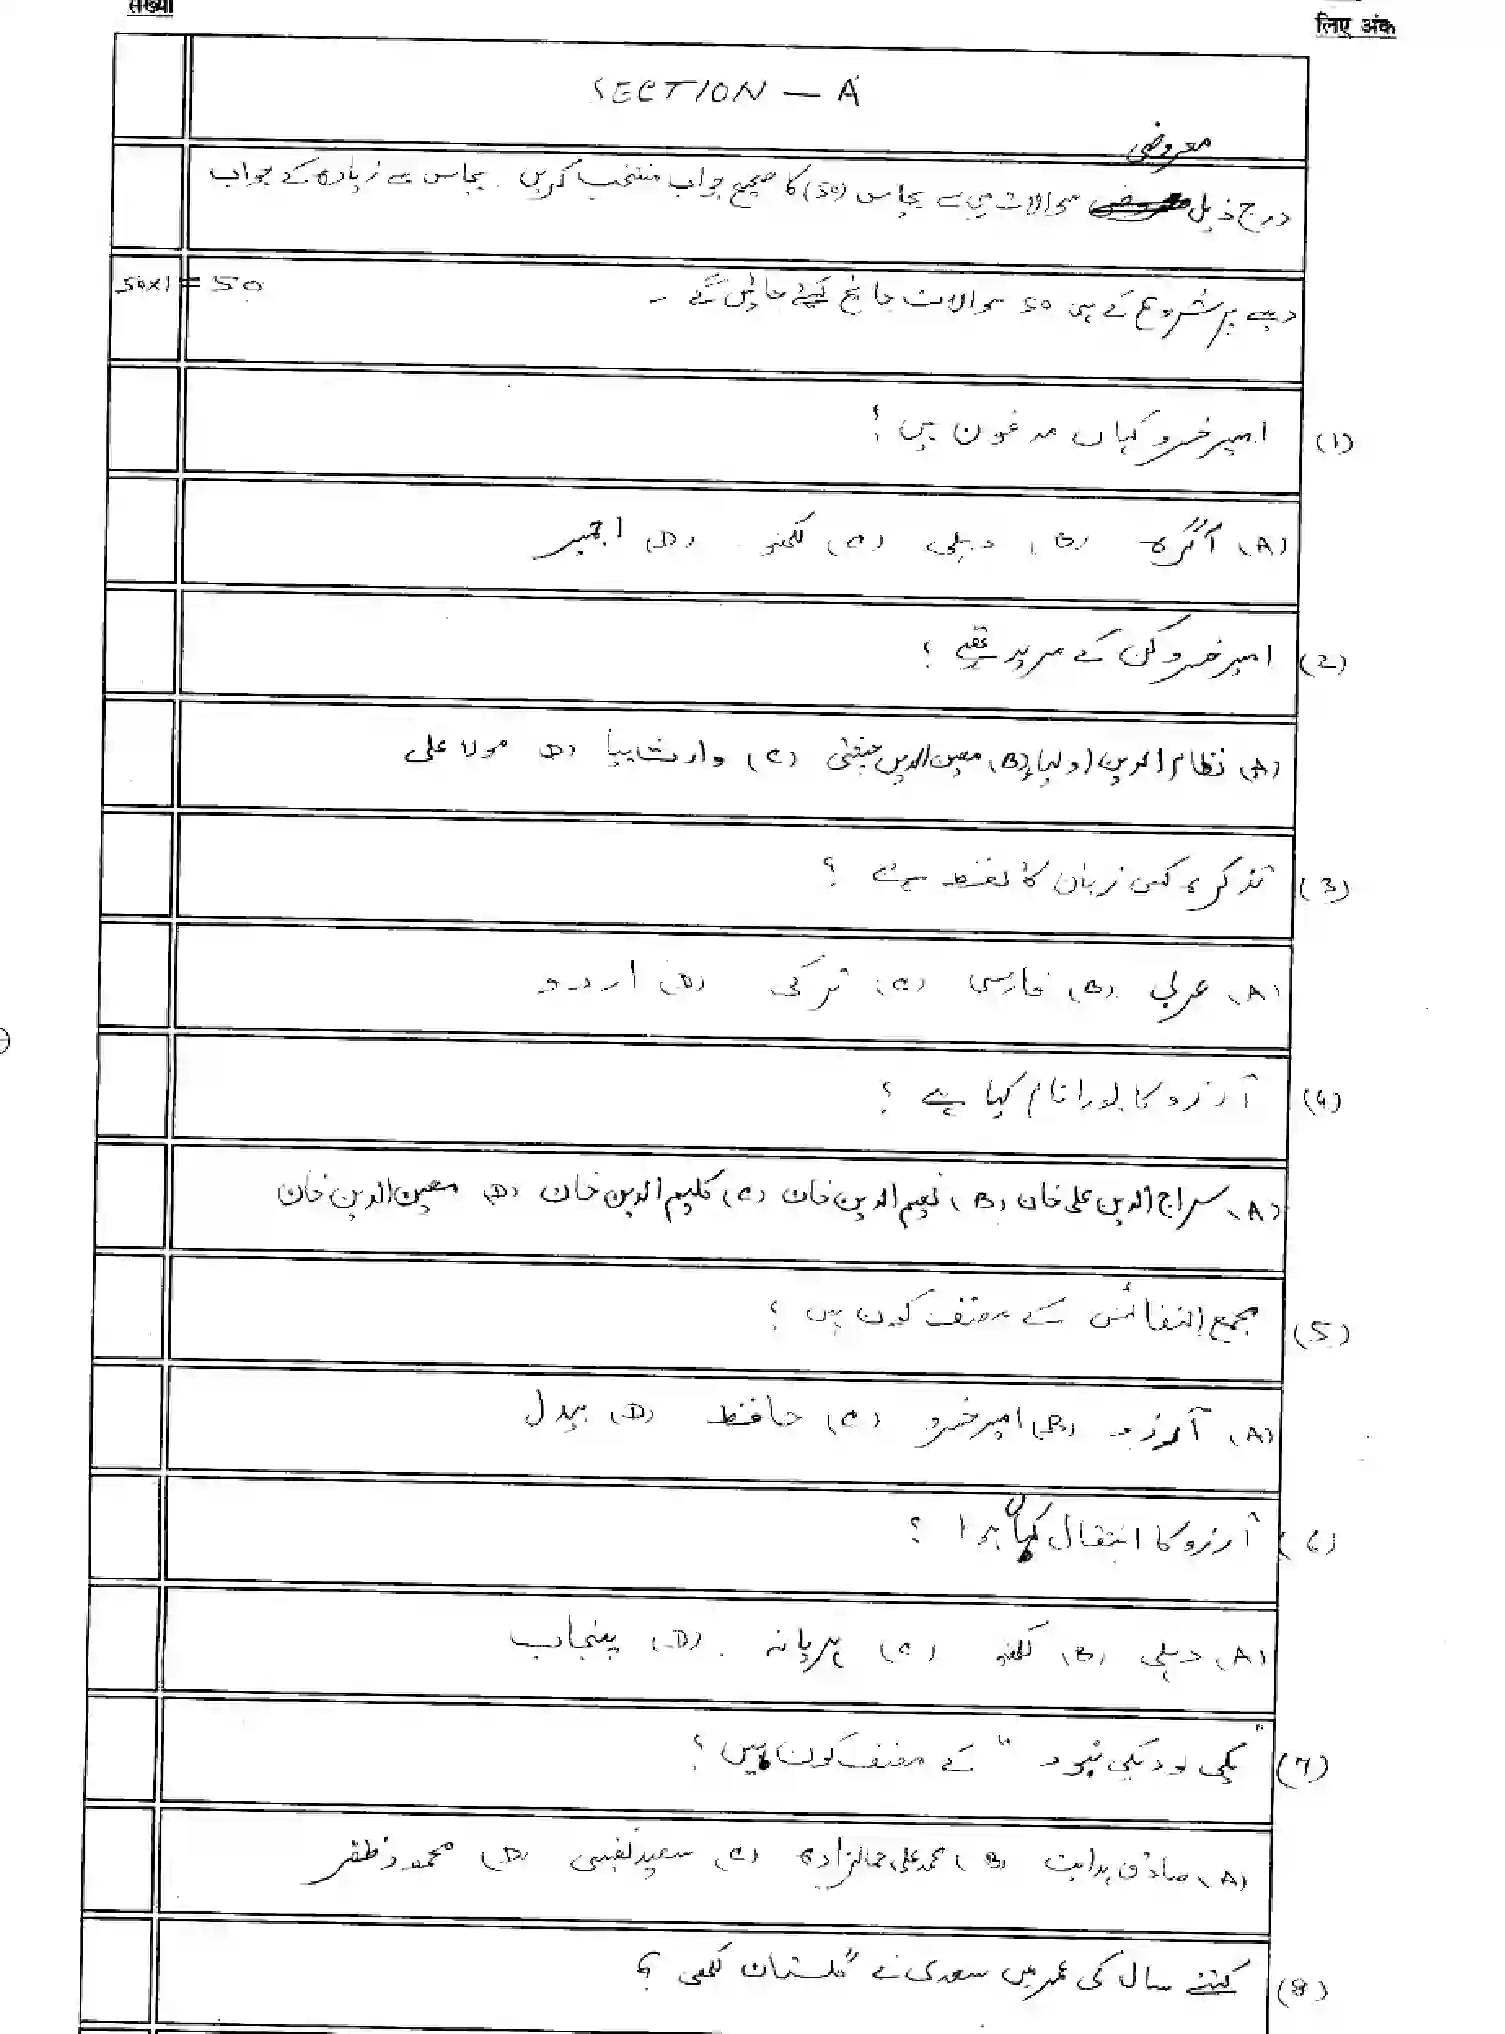 संख्या
लिए अंक
SECTION — A
معروضی
درج ذیل سوالات میں سے پچاس (50) کا صحیح جواب منتخب کریں۔ پچاس سے زیادہ کے جواب
دیے پر شروع کے ہی 50 سوالات جانچ کیے جائیں گے ۔
50x1 = 50
(1) امیر خسرو کہاں مدفون ہیں؟
(A) آگرہ (B) دہلی (C) لکھنو (D) اجمیر
(2) امیر خسرو کن کے مرید تھے ؟
(A) نظام الدین اولیا (B) معین الدین چشتی (C) وارث پیا (D) مولا علی
(3) تذکرہ کس زبان کا لفظ ہے ؟
(A) عربی (B) فارسی (C) ترکی (D) اردو
(4) آرزو کا پورا نام کیا ہے ؟
(A) سراج الدین علی خان (B) نعیم الدین خان (C) کلیم الدین خان (D) معین الدین خان
(5) مجمع النفائس کے مصنف کون ہیں ؟
(A) آرزو (B) امیر خسرو (C) حافظ (D) بیدل
(6) آرزو کا انتقال کہاں ہوا ؟
(A) دہلی (B) لکھنو (C) ہریانہ (D) پنجاب
(7) "یکی بود یکی نبود" کے مصنف کون ہیں؟
(A) صادق ہدایت (B) محمد علی جمالزادہ (C) سعید نفیسی (D) محمود ظفر
(8) کتنے سال کی عمر میں سعدی نے گلستان لکھی ؟